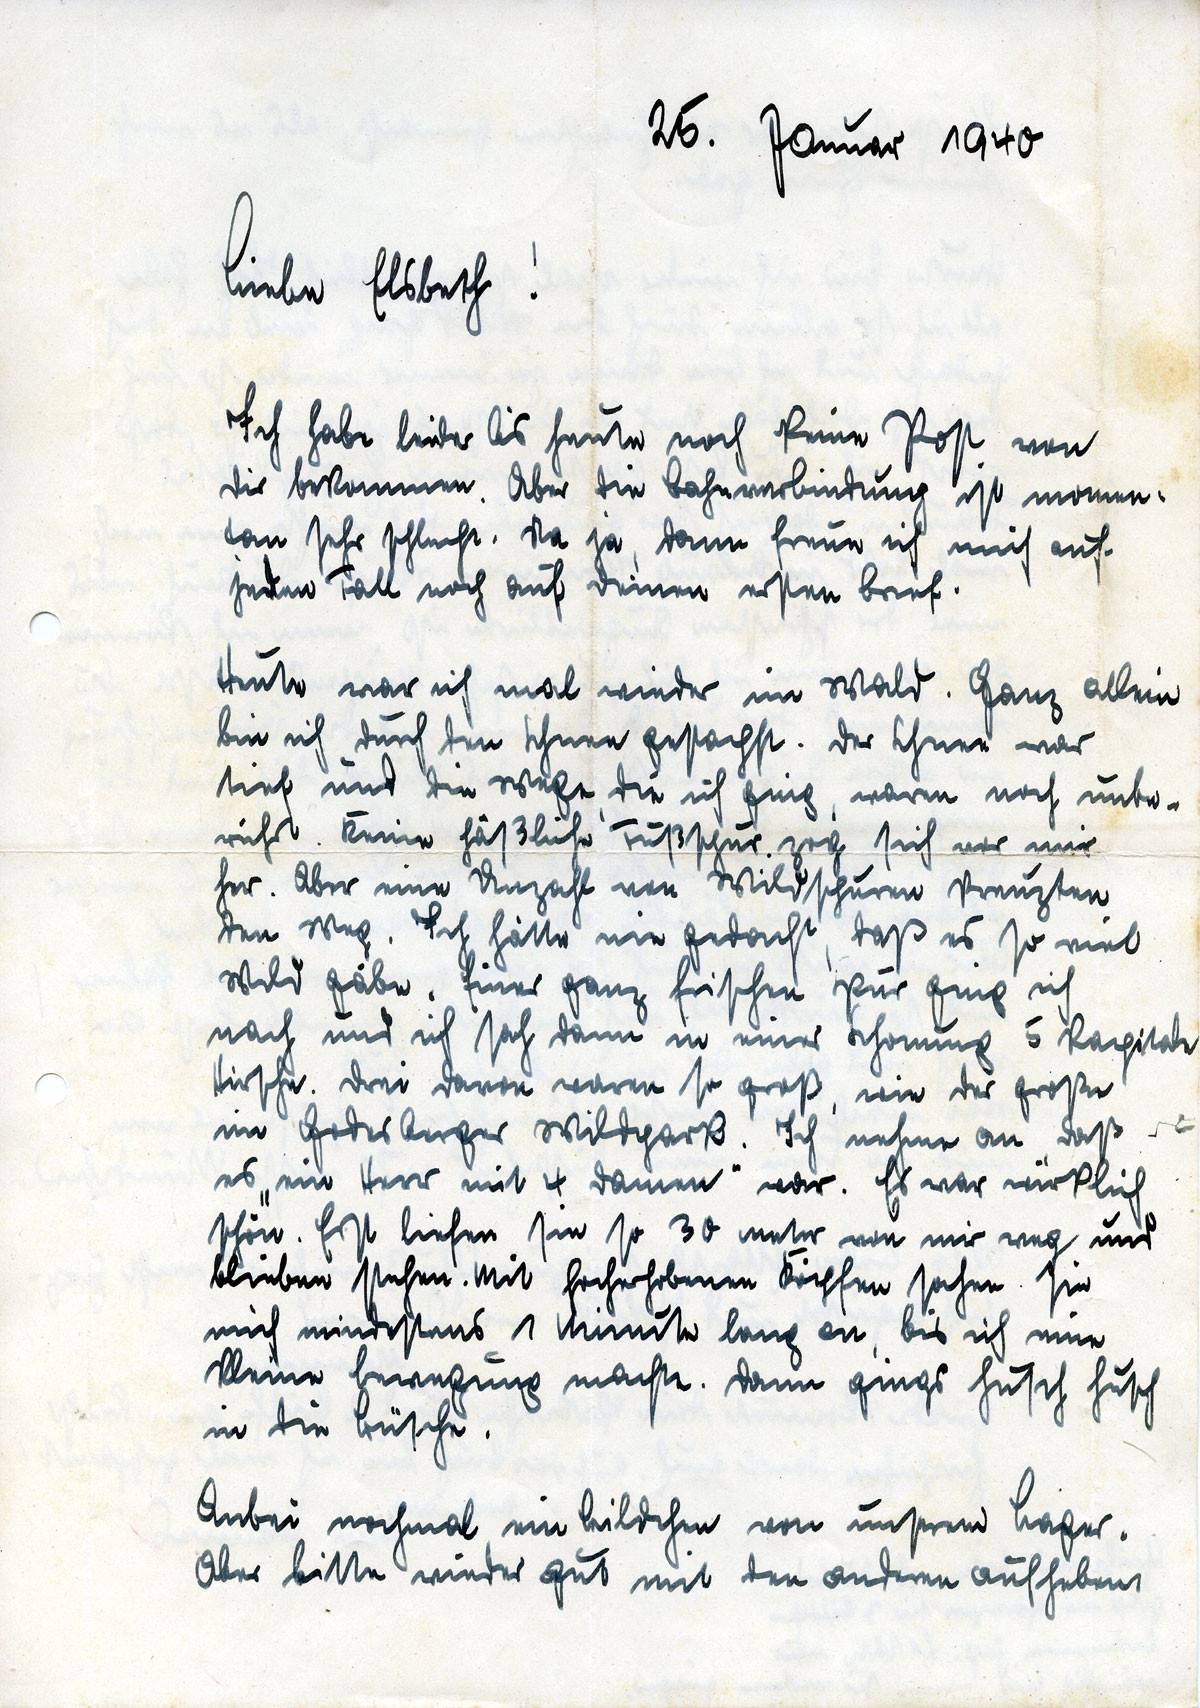 25. Januar 1940
Liebe Elsbeth!
Ich habe leider bis heute noch keine Post von
dir bekommen. Aber die Bahnverbindung ist momen-
tan sehr schlecht. Na ja, dann freue ich mich auf
jeden Fall noch auf deinen ersten Brief.
Heute war ich mal wieder im Wald. Ganz allein
bin ich durch den Schnee gestapft. Der Schnee war
tief und die Wege, die ich ging, waren noch unbe-
rührt. Keine häßliche Fußspur zog sich vor mir
her. Aber eine Anzahl von Wildspuren kreuzten
den Weg. Ich hätte nie gedacht, daß es so viel
Wild gäbe. Einer ganz frischen Spur ging ich
nach und ich sah dann in einer Schonung 5 kapitale
Hirsche. Drei davon waren so groß, wie der große
im Godesberger Wildpark. Ich nehme an, daß
es „ein Herr mit 4 Damen" war. Es war wirklich
schön. Erst liefen sie so 30 meter von mir weg und
blieben stehen. Mit hocherhobenen Köpfen sahen sie
mich mindestens 1 Minute lang an, bis ich eine
kleine Bewegung machte. Dann gings husch husch
in die Büsche.
Anbei nochmal ein Bildchen von unserem Lager.
Aber bitte wieder gut mit den anderen aufheben!